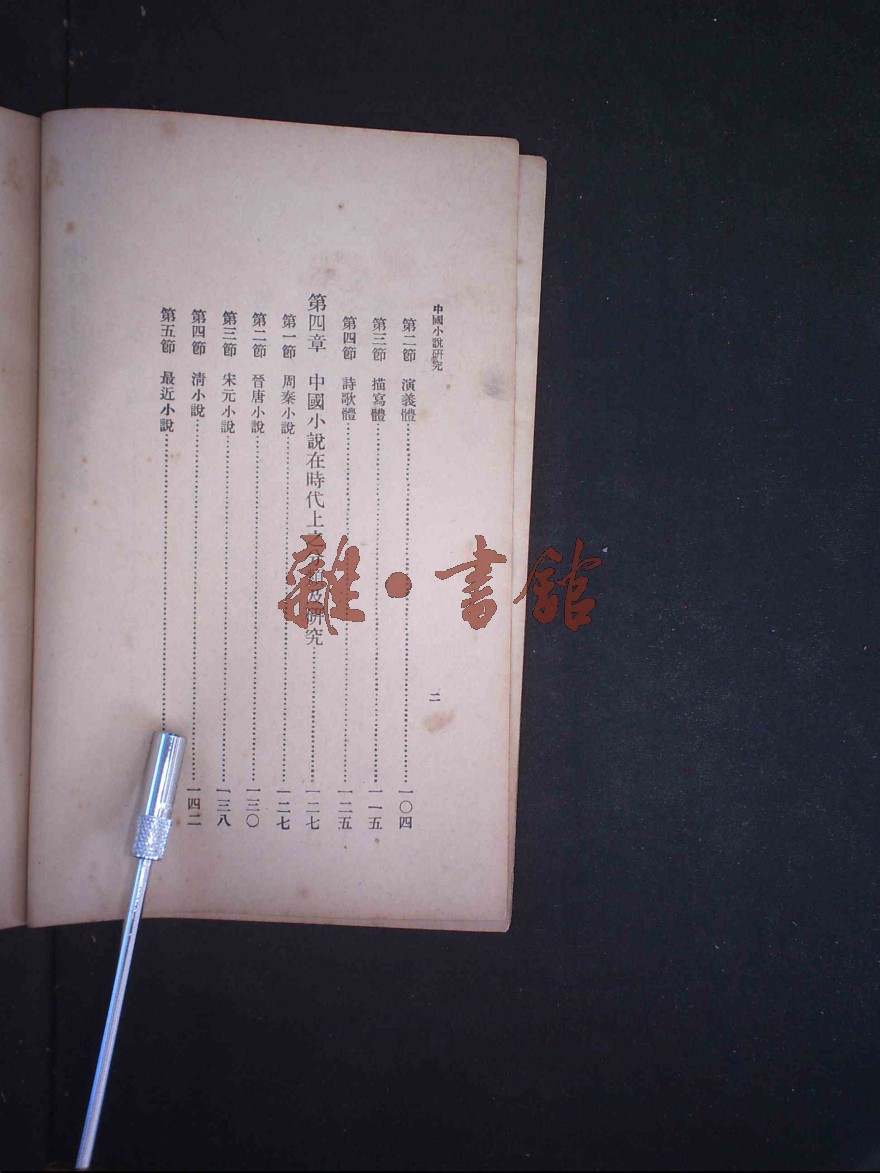 中國小說研究
二
第二節 演義體 一〇四
第三節 描寫體 一一五
第四節 詩歌體 一二五
第四章 中國小說在時代上之 及研究 一二七
第一節 周秦小說 一二七
第二節 晉唐小說 一三〇
第三節 宋元小說 一三八
第四節 清小說 一四二
第五節 最近小說
雜·書館